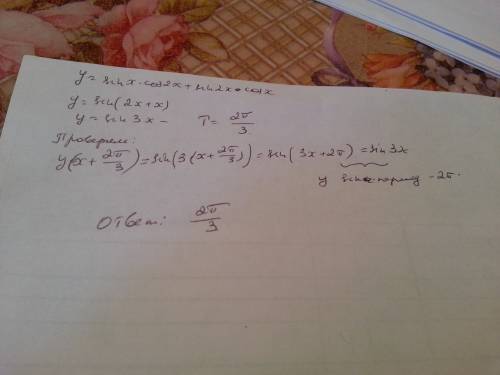 y = sin x · cos 2x + sin 2x · cos x
y = sin(2x + x)
y = sin 3x – T = 2π/3
Проверяем:
y(x + 2π/3) = sin(3(x + 2π/3)) = sin(3x + 2π) = sin 3x
у sin период – 2π.
Ответ: 2π/3